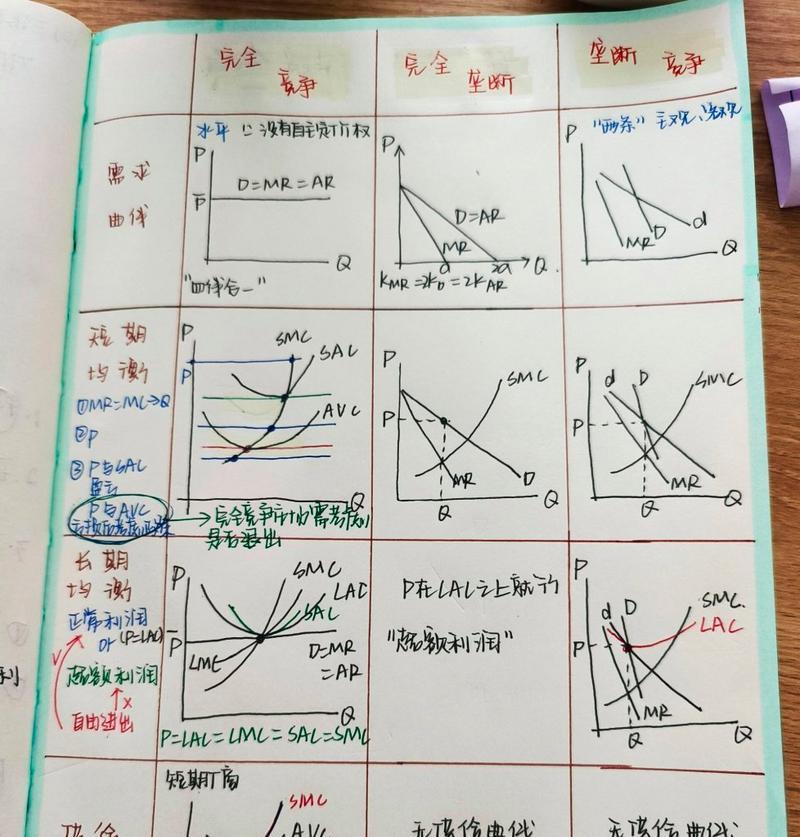 完全
竞争
完全
垄断
垄断
竞争
需求
曲线
水平 ∵没有自主定价权
P
P̄
D=MR=AR
Q
"四线合一"
P
D=AR
MR
a
2a
Q
K_MR=2K_D=2K_AR
P
"两条" 主观、客观
MR
D
d
Q
短期
均衡
①MR=MC→Q
②P
③P与SAC
盈亏
P与AVC
P
P
SMC
SAC
AVC
Q
→完全竞争市场需考虑
是否退出
P
P
SMC
MR
D
Q
Q
P
P
d
D
SMC
MR
Q
Q
长期
均衡
正常利润
or (P=LAC)
超额利润
x
自由进出
P
P̄
SMC
LAC
SAC
D=MR
=AR
LMC
Q
P=LAC=LMC=SAC=SMC
P在LAC之上就行
"超额利润"
P
P
d
D
SMC
LAC
MR
Q
Q
短期厂商
SMC
AVC
供给
无供给曲线
无供给曲线